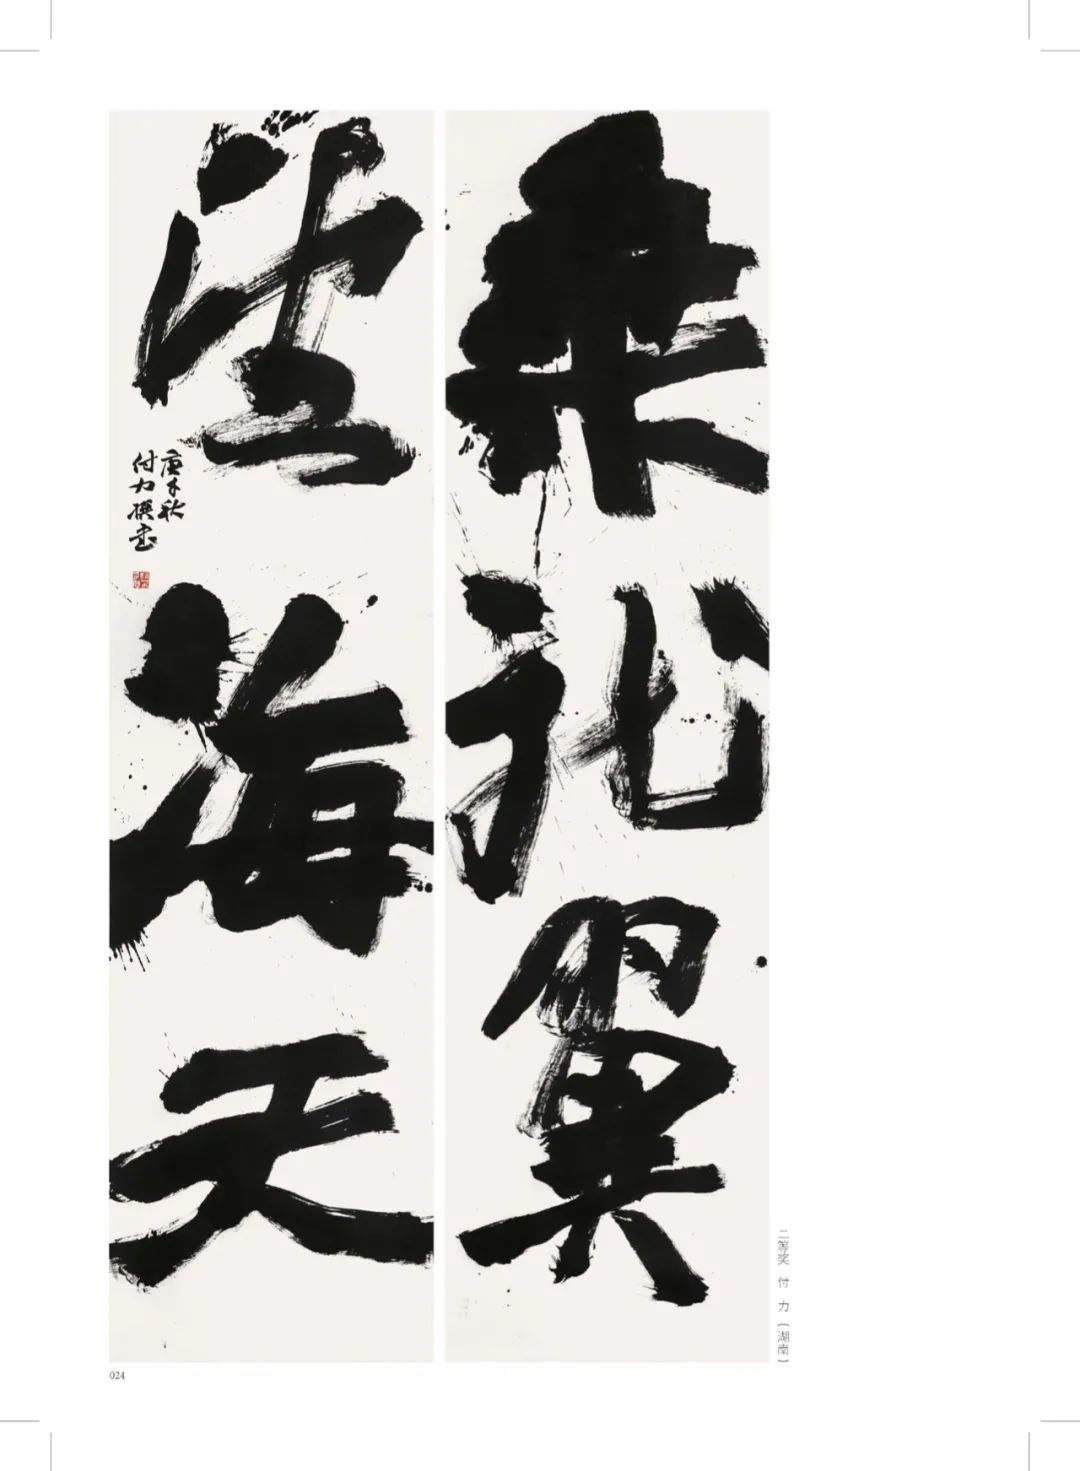 乘翼
海天
庚子秋
付力撰書
二等奖 付 力（湖南）
024